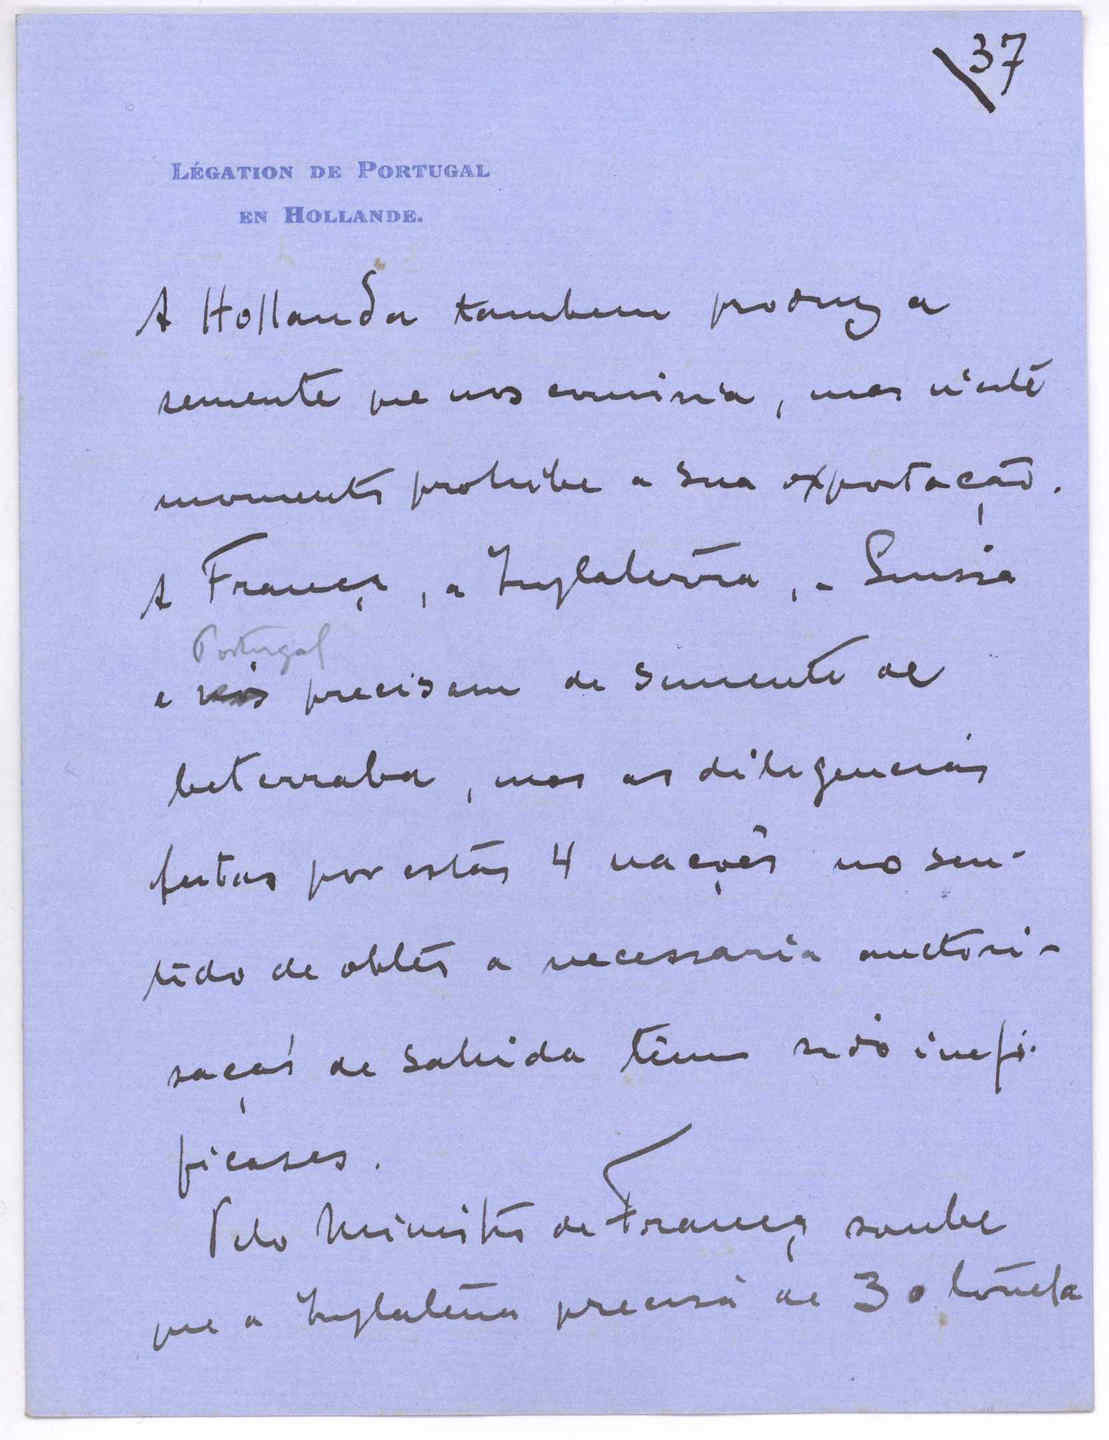 37
LÉGATION DE PORTUGAL
EN HOLLANDE.
A Hollanda tambem produz a
semente que nos convinia, mas n'esté
momento prohibe a sua exportação.
A França, a Inglaterra, a Suissa
Portugal
e nós precisam de semente de
beterraba, mas as diligencias
feitas por estas 4 nações no sen-
tido de obter a necessaria auctori-
sação de sahida têem sido inefi-
ficases.
Pelo Ministro de França soube
que a Inglaterra precisa de 30 tonela